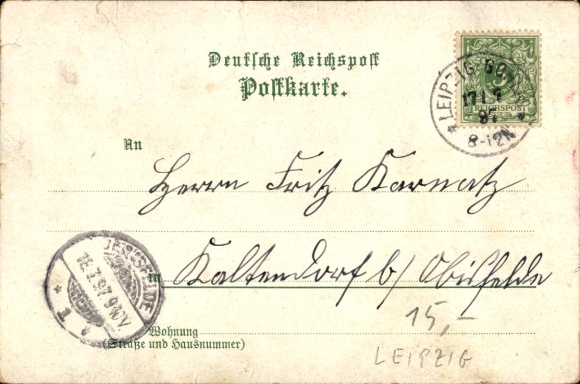 Deutsche Reichspost
Postkarte.
* LEIPZIG
17 7
97 *
8-12N
REICHSPOST
An
Herrn Fritz Karnatz
in
Kaltendorf b/ Obisfelde
18.7.97
Wohnung
(Straße und Hausnummer)
15,-
LEIPZIG